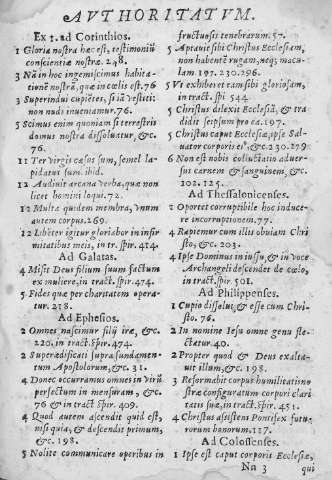 AVTHORITATVM.
Ex 1. ad Corinthios.
1 Gloria nostra hæc est, testimoniũ
conscientiæ nostræ. 248.
3 Nã in hoc ingemiscimus habita-
tionẽ nostrã, quæ in cælis est. 76
3 Superindui cupiẽtes, si tã vestiti:
non nudi inueniamur. 76.
3 Scimus enim quoniam si terrestris
domus nostra dissoluatur, &c.
76.
11 Ter virgis cæsus sum, semel lapi-
datus sum. ibid.
12 Audiuit arcana verba, quæ non
licet homini loqui. 72.
12 Multa quidem membra, vnum
autem corpus. 269.
12 Libẽter igitur gloriabor in infir-
mitatibus meis, in tr. spir. 414.
Ad Galatas.
4 Misit Deus filium suum factum
ex muliere, in tract. spir. 474.
5 Fides quæ per charitatem opera-
tur. 218.
Ad Ephesios.
2 Omnes nascimur filij iræ, &c.
220. in tract. spir. 474.
2 Superædificati supra fundamen-
tum Apostolorum, &c. 31.
4 Donec occurramus omnes in Virũ
perfectum in mensuram, &c.
76 & in tract. spir. 409.
4 Quod autem ascendit quid est,
nisi quia, & descendit primum,
&c. 198.
5 Nolite communicare operibus in
fructuosis tenebrarum. 57.
5 Aptauit sibi Christus Ecclesiam,
non habentẽ rugam, neq; macu-
lam. 197. 230. 296.
5 Vt exhiberet eam sibi gloriosam,
in tract. spi. 544.
5 Christus dilexit Ecclesiã, & tra-
didit seipsum pro ea. 197.
5 Christus caput Ecclesiæ, ipse Sal-
uator corporis ei⁹. &c. 230. 279.
6 Non est nobis colluctatio aduer-
sus carnem & sanguinem, &c.
102. 125.
Ad Thessalonicenses.
2 Oportet corruptibile hoc induce-
re incorruptionem. 77.
4 Rapiemur cum illis obuiam Chri
sto, &c. 203.
4 Ipse Dominus in iussu, & in voce
Archangeli descendet de cælo,
in tract. spir. 501.
Ad Philippenses.
1 Cupio dissolui, & esse cum Chri-
sto. 76.
2 In nomine Iesu omne genu fle-
ctatur. 40.
2 Propter quod & Deus exalta-
uit illum, &c. 198.
3 Reformabit corpus humilitatis no
stræ configuratum corpori clari
tatis suæ, in tract. spir. 451.
4 Christus assistens Pontifex futu-
rorum bonorum. 117.
Ad Colossenses.
1 Ipse est caput corporis Ecclesiæ,
Nn 3 qui